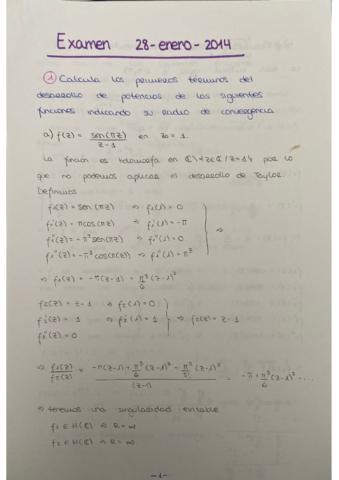 Examen 28-enero-2014
① Calcula los primeros términos del
desarrollo de potencias de las siguientes
funciones indicando su radio de convergencia
a) f(z) = sen(πz)/(z-1) en z₀ = 1.
La función es holomorfa en ℂ\{z∈ℂ/z=1} por lo
que no podemos aplicar el desarrollo de Taylor.
Definimos
f₁(z) = sen(πz) ⇒ f₁(1) = 0
f₁'(z) = πcos(πz) ⇒ f₁'(1) = -π
f₁''(z) = -π² sen(πz) ⇒ f₁''(1) = 0
f₁'''(z) = -π³ cos(πz) ⇒ f₁'''(1) = π³
⇒ f₁(z) = -π(z-1) + π³/6 (z-1)³
f₂(z) = z-1 ⇒ f₂(1) = 0
f₂'(z) = 1 ⇒ f₂'(1) = 1 ⇒ f₂(z) = z-1
f₂''(z) = 0
⇒ f₁(z)/f₂(z) = = -π + π³/6 (z-1)² - ...
⇒ tenemos una singularidad evitable
f₁ ∈ H(ℂ) ⇒ R = ∞
f₂ ∈ H(ℂ) ⇒ R = ∞
-1-